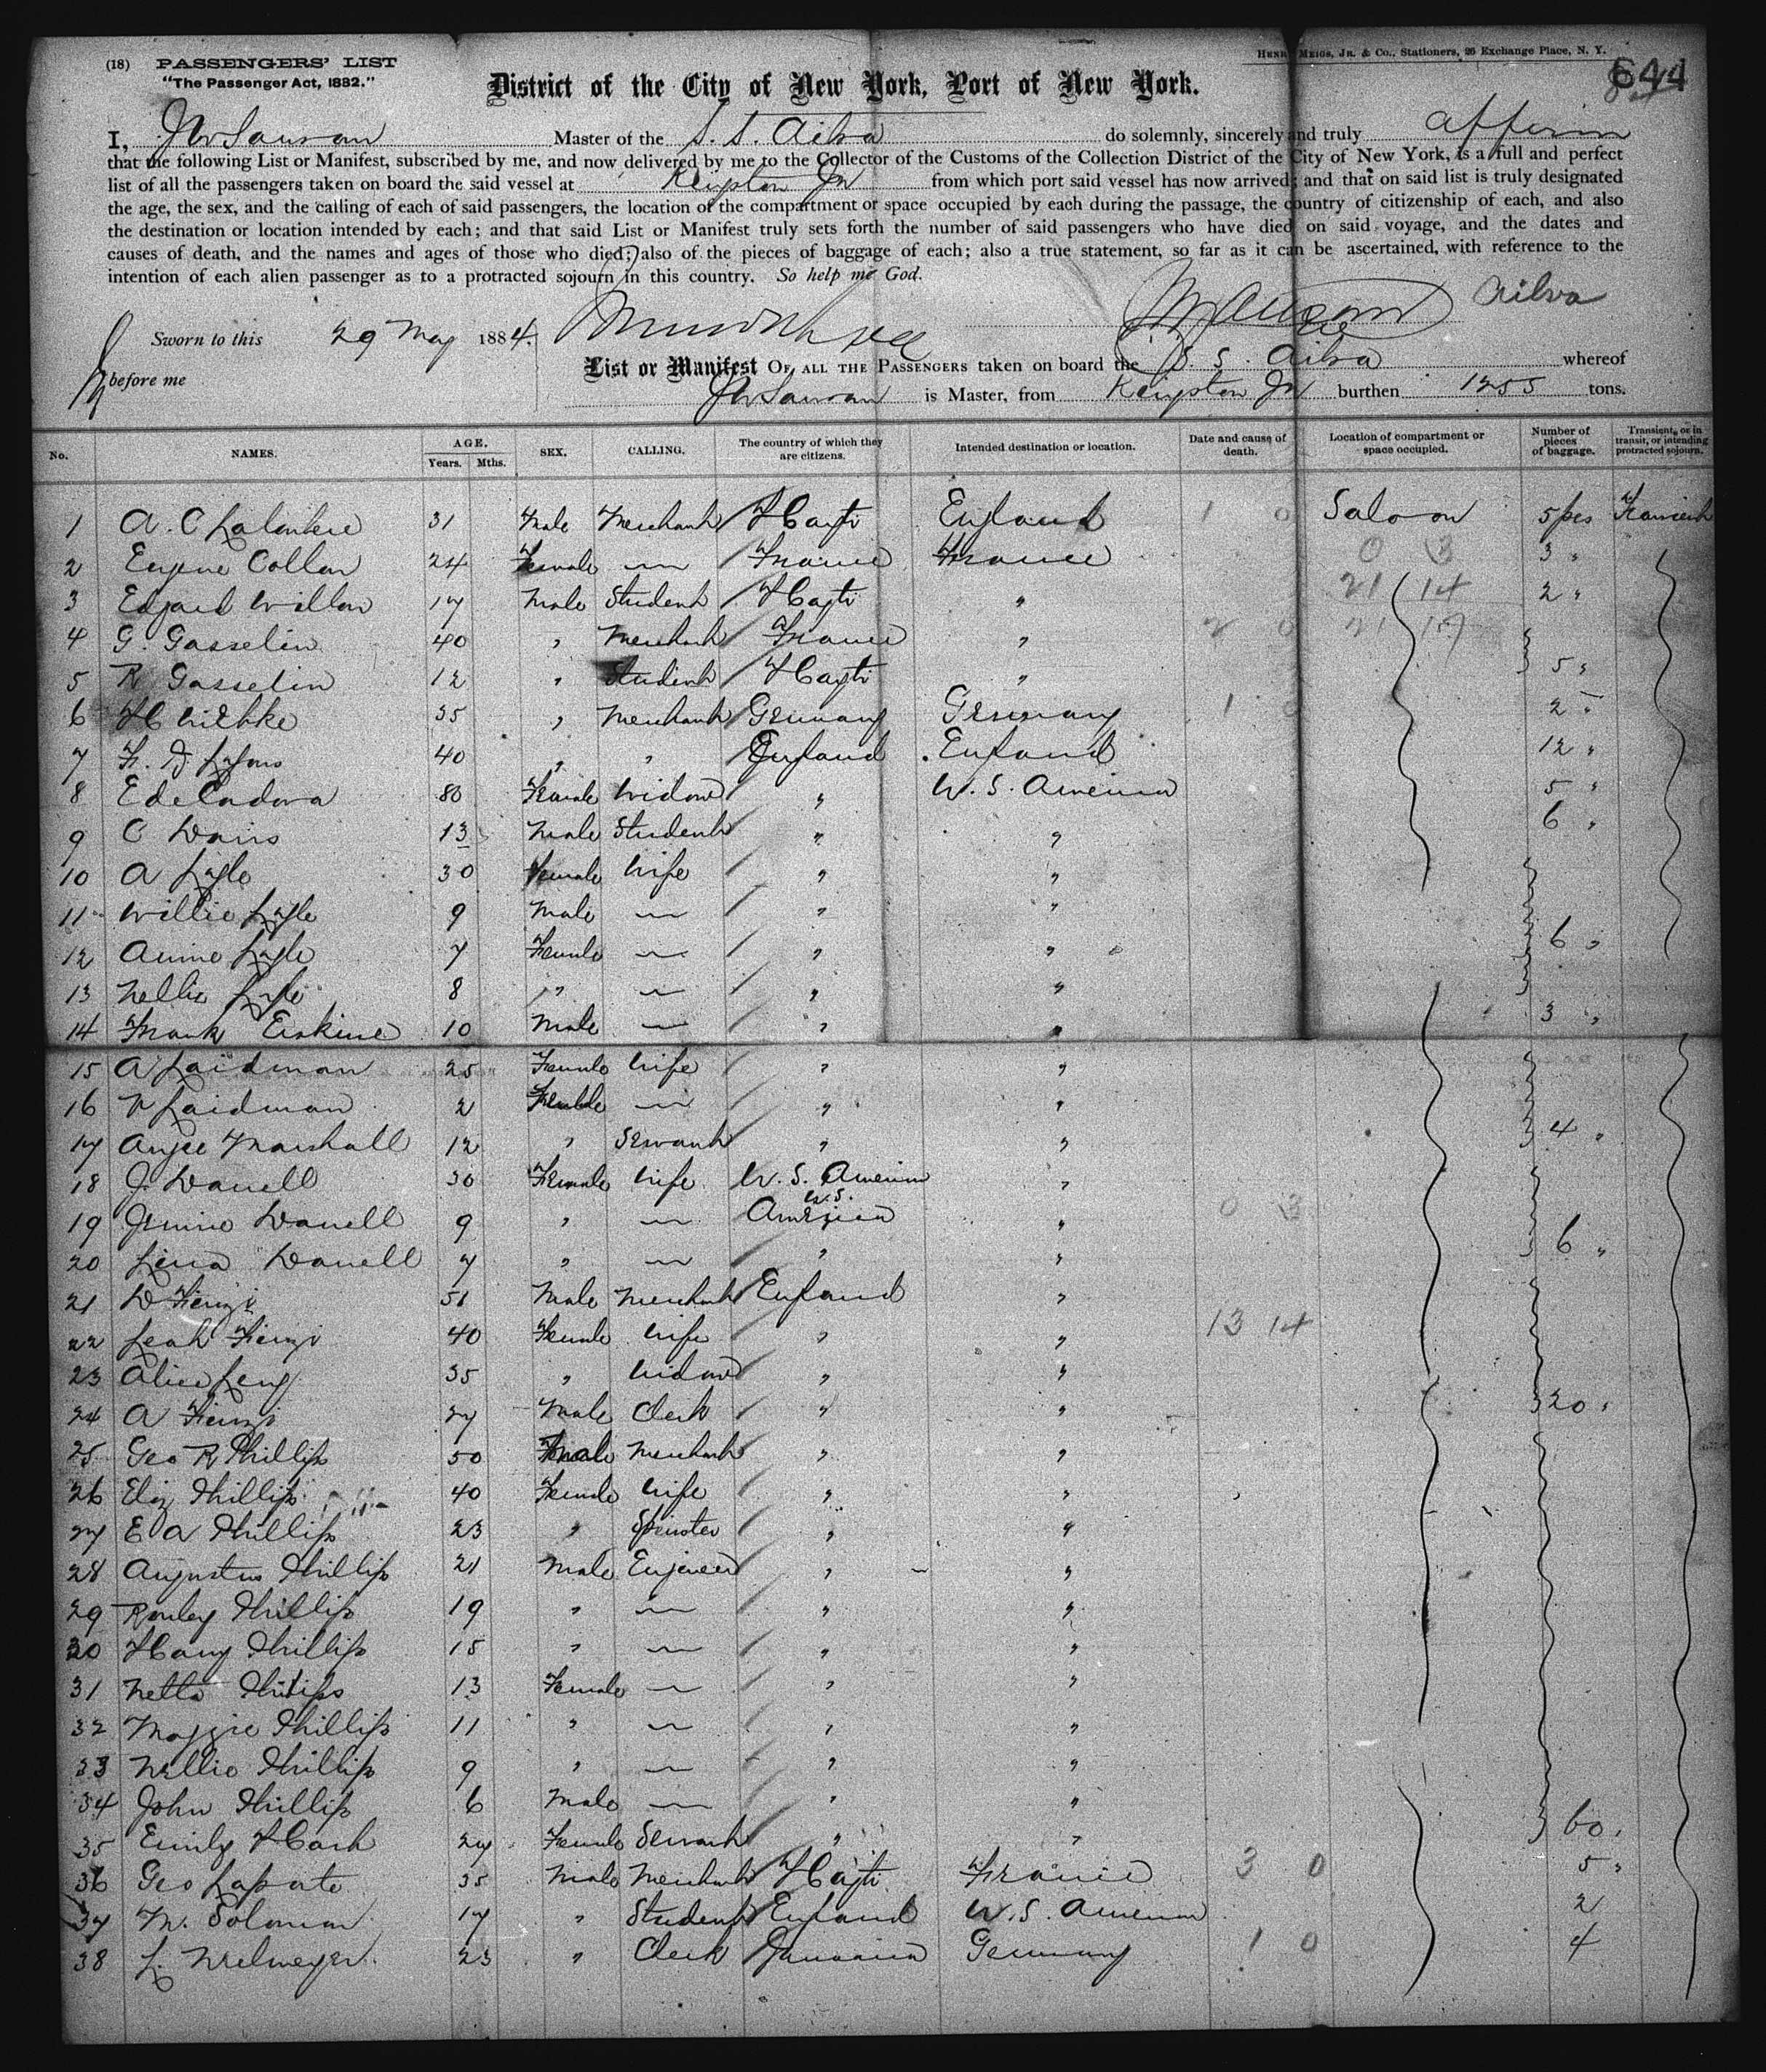 (18) PASSENGERS' LIST
"The Passenger Act, 1882."
HENRY MEIGS, JR. & CO., Stationers, 26 Exchange Place, N. Y.
District of the City of New York, Port of New York.
644
I, Master of the S. S. Ailsa do solemnly, sincerely and truly affirm
that the following List or Manifest, subscribed by me, and now delivered by me to the Collector of the Customs of the Collection District of the City of New York, is a full and perfect
list of all the passengers taken on board the said vessel at from which port said vessel has now arrived; and that on said list is truly designated
the age, the sex, and the calling of each of said passengers, the location of the compartment or space occupied by each during the passage, the country of citizenship of each, and also
the destination or location intended by each; and that said List or Manifest truly sets forth the number of said passengers who have died on said voyage, and the dates and
causes of death, and the names and ages of those who died; also of the pieces of baggage of each; also a true statement, so far as it can be ascertained, with reference to the
intention of each alien passenger as to a protracted sojourn in this country. So help me God.
Ailsa
Sworn to this 29 May 1884.
before me
List or Manifest OF ALL THE PASSENGERS taken on board the S. S. Ailsa whereof
is Master, from burthen 1255 tons.
No. NAMES. AGE. Years. Mths. SEX. CALLING. The country of which they are citizens. Intended destination or location. Date and cause of death. Location of compartment or space occupied. Number of pieces of baggage. Transient, or in transit, or intending protracted sojourn.
1 A. C 31 Male Merchant Hayti England 1 0 Saloon 5 pcs Transient
2 Eugene Collon 24 Female — France France 0 3 3 "
3 Edgard Willon 17 Male Student Hayti " 21 14 2 "
4 G. Gosselin 40 " Merchant France " 2 0 21 17
5 R Gosselin 12 " Student Hayti " 5 "
6 H 35 " Merchant Germany Germany 1 0 2 "
7 F. D. Lyons 40 " " England England 12 "
8 E de Cordova 80 Female Widow " U. S. America 5 "
9 C Davis 13 Male Student " " 6 "
10 A Lyle 30 Female Wife " "
11 Willie Lyle 9 Male — " "
12 Annie Lyle 7 Female — " " 6 "
13 Nellie Lyle 8 " — " "
14 Frank Erskine 10 Male — " " 3 "
15 A Laidman 25 Female Wife " "
16 Laidman 2 Female — " "
17 Angee Marshall 12 " Servant " " 4 "
18 J. Daniell 30 Female Wife U. S. America "
19 Jennie Daniell 9 " — U. S. America " 0 3
20 Lena Daniell 7 " — " " 6 "
21 D 51 Male Merchant England "
22 Leah 40 Female Wife " " 13 14
23 Alice Levy 35 " Widow " "
24 A 27 Male Clerk " " 20 "
25 Geo R Phillips 50 Male Merchant " "
26 Eliz Phillips 40 Female Wife " "
27 E A Phillips 23 " Spinster " "
28 Augustus Phillips 21 Male Engineer " "
29 Phillips 19 " — " "
30 Harry Phillips 15 " — " "
31 Netta Phillips 13 Female — " "
32 Maggie Phillips 11 " — " "
33 Nellie Phillips 9 " — " "
34 John Phillips 6 Male — " "
35 Emily 24 Female Servant " " 60 "
36 Geo Laporte 35 Male Merchant Hayti France 3 0 5 "
37 M. Solomon 17 " Student England U. S. America 2
38 L. 23 " Clerk Jamaica Germany 1 0 4